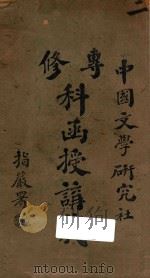 二
中國文學研究社
專修
科函授講義
指嚴署
mtoou.info mtoou.info